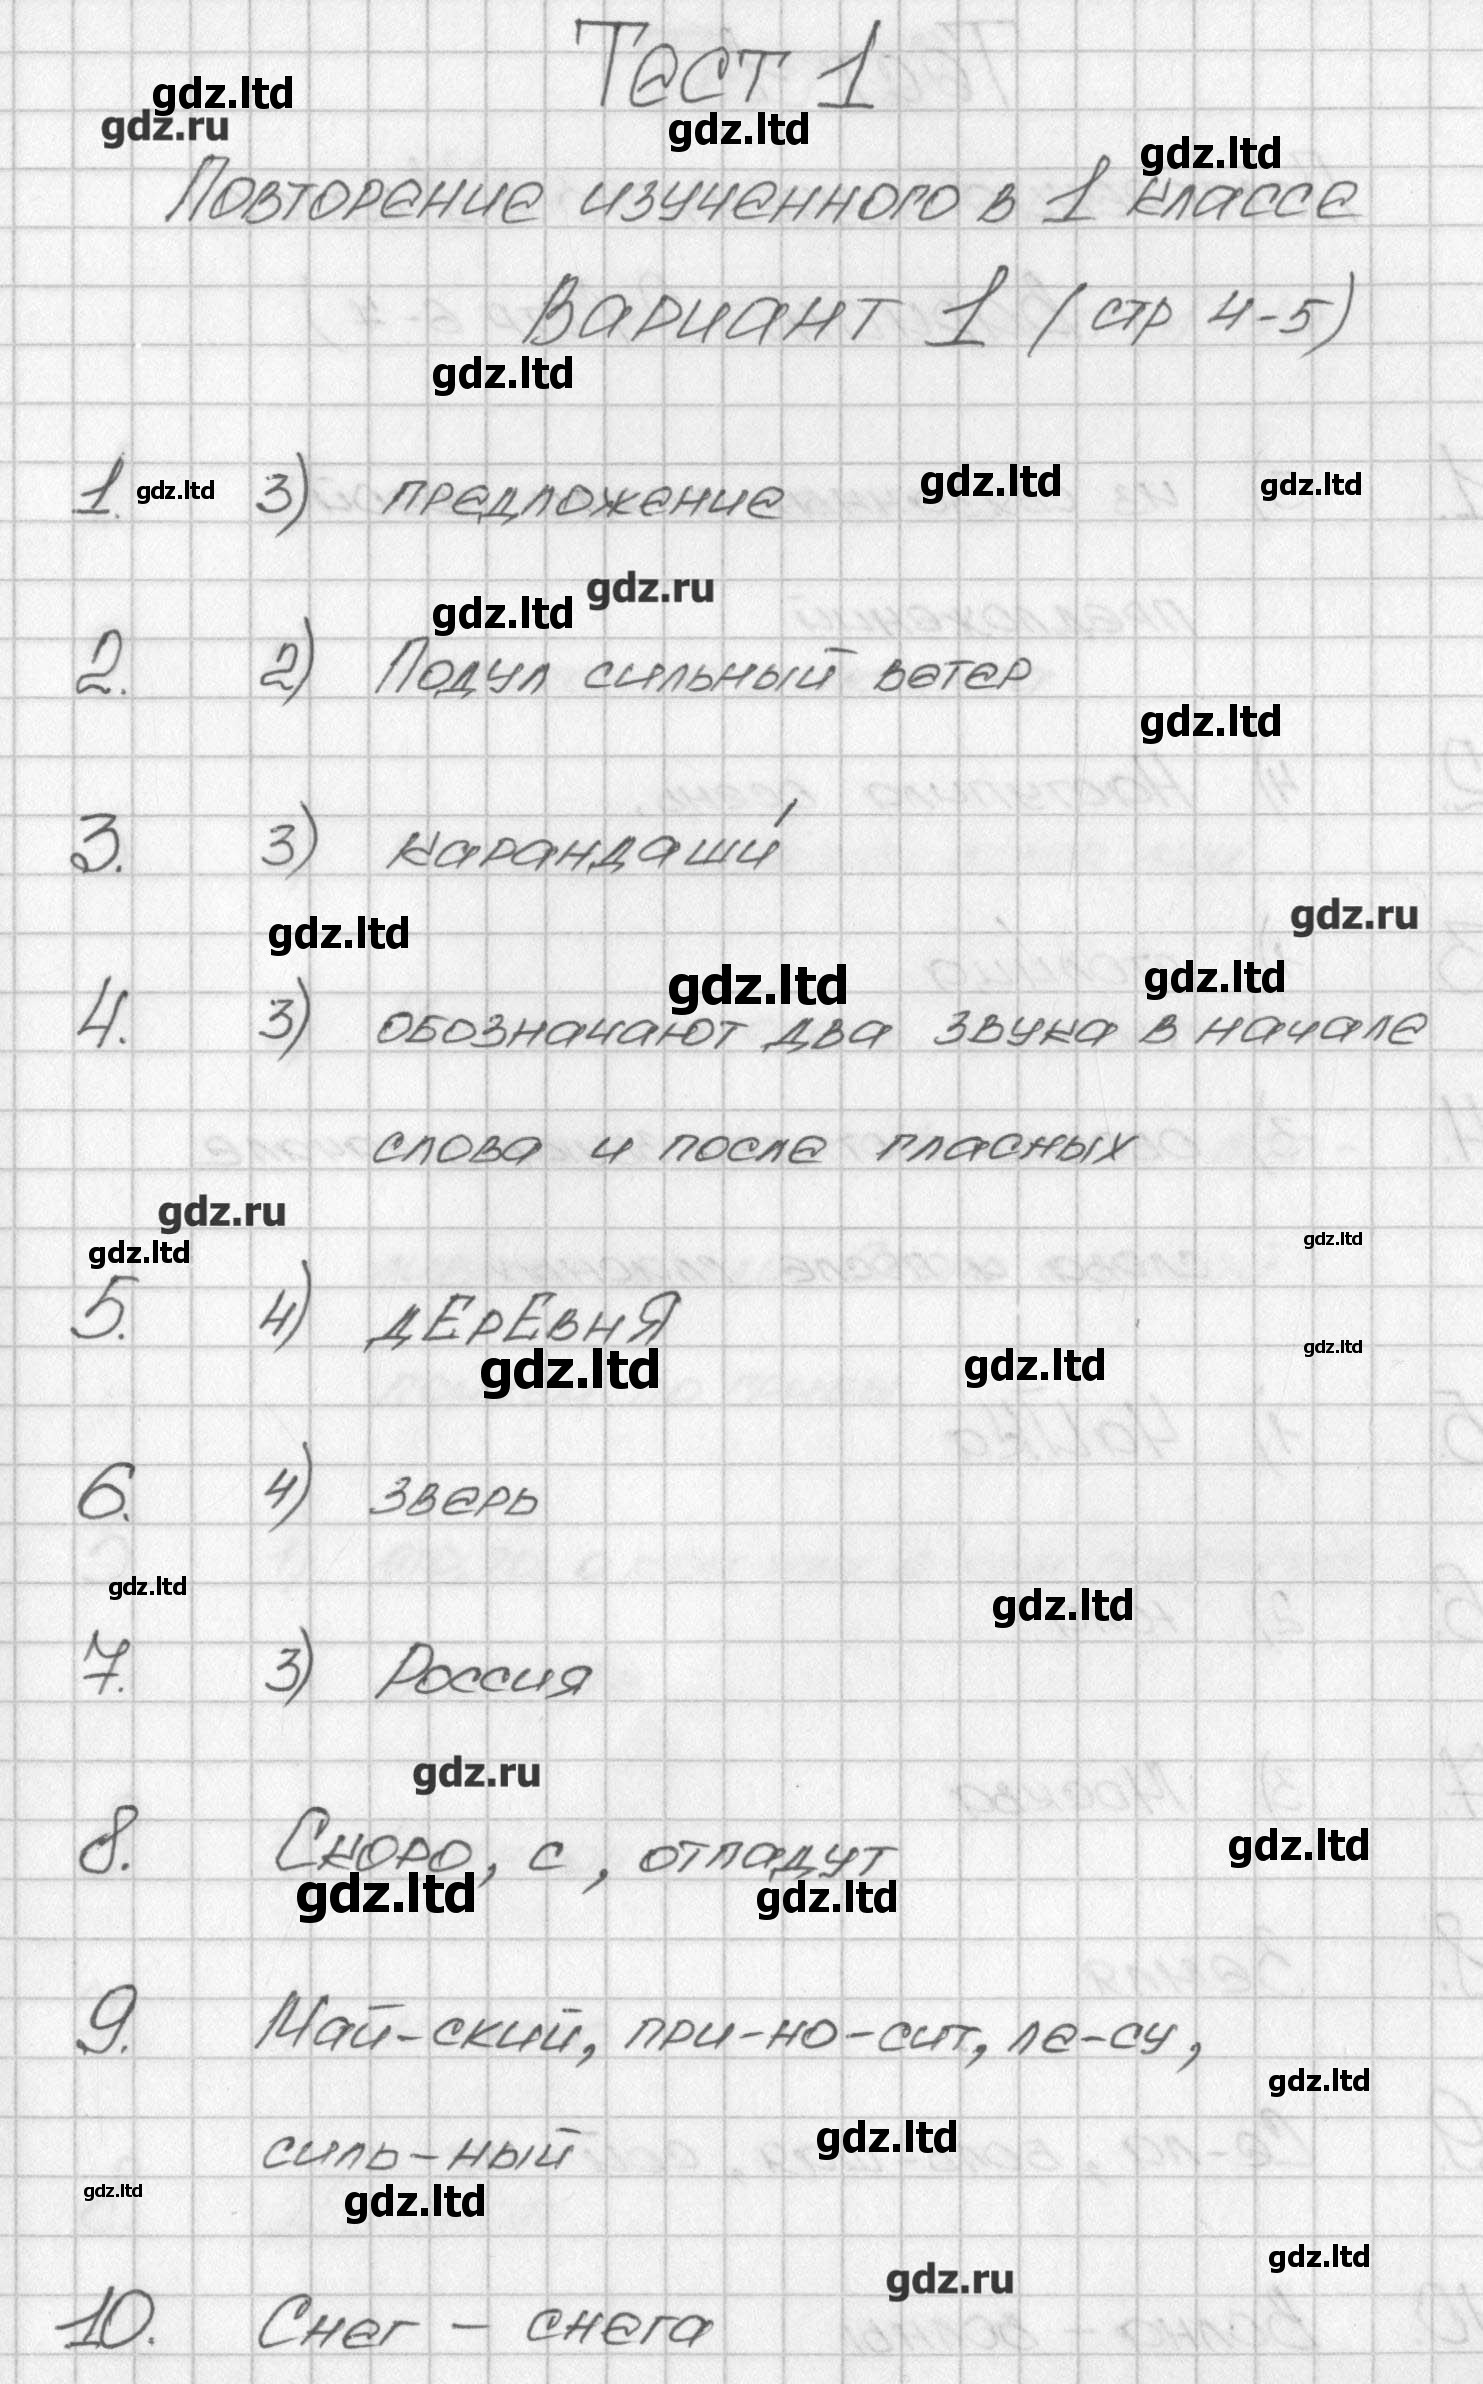 Тест 1
gdz.ltd
gdz.ru
gdz.ltd
gdz.ltd
Повторение изученного в 1 классе
Вариант 1 (стр 4-5)
gdz.ltd
1. gdz.ltd 3) предложение gdz.ltd gdz.ltd
gdz.ru
gdz.ltd
2. 2) Подул сильный ветер
gdz.ltd
3. 3) карандаши́
gdz.ru
gdz.ltd
gdz.ltd gdz.ltd
4. 3) обозначают два звука в начале
слова и после гласных
gdz.ru
gdz.ltd gdz.ltd
5. 4) дЕрЕвнЯ
gdz.ltd gdz.ltd gdz.ltd
6. 4) зверь
gdz.ltd gdz.ltd
7. 3) Россия
gdz.ru
8. Скоро, с, отпадут gdz.ltd
gdz.ltd gdz.ltd
9. Май-ский, при-но-сит, ле-су,
gdz.ltd
силь-ный gdz.ltd
gdz.ltd gdz.ltd
gdz.ltd
gdz.ru
10. Снег - снега